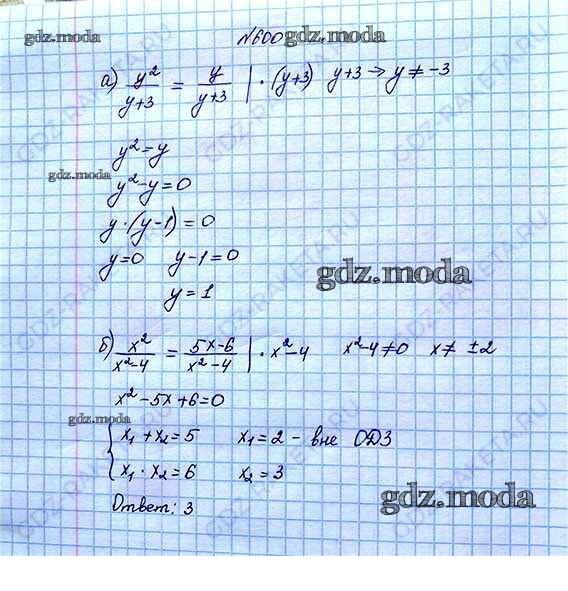 gdz.moda №600 gdz.moda
а) y²/(y+3) = y/(y+3) | · (y+3) y+3 → y ≠ -3
y² = y
gdz.moda
y² - y = 0
y · (y - 1) = 0
y = 0 y - 1 = 0
gdz.moda
y = 1
б) x²/(x²-4) = (5x-6)/(x²-4) | · x²-4 x²-4 ≠ 0 x ≠ ±2
x² - 5x + 6 = 0
gdz.moda
{ x₁ + x₂ = 5 x₁ = 2 - вне ОДЗ
x₁ · x₂ = 6 x₂ = 3
gdz.moda
Ответ: 3
GDZ-RAKETA.RU